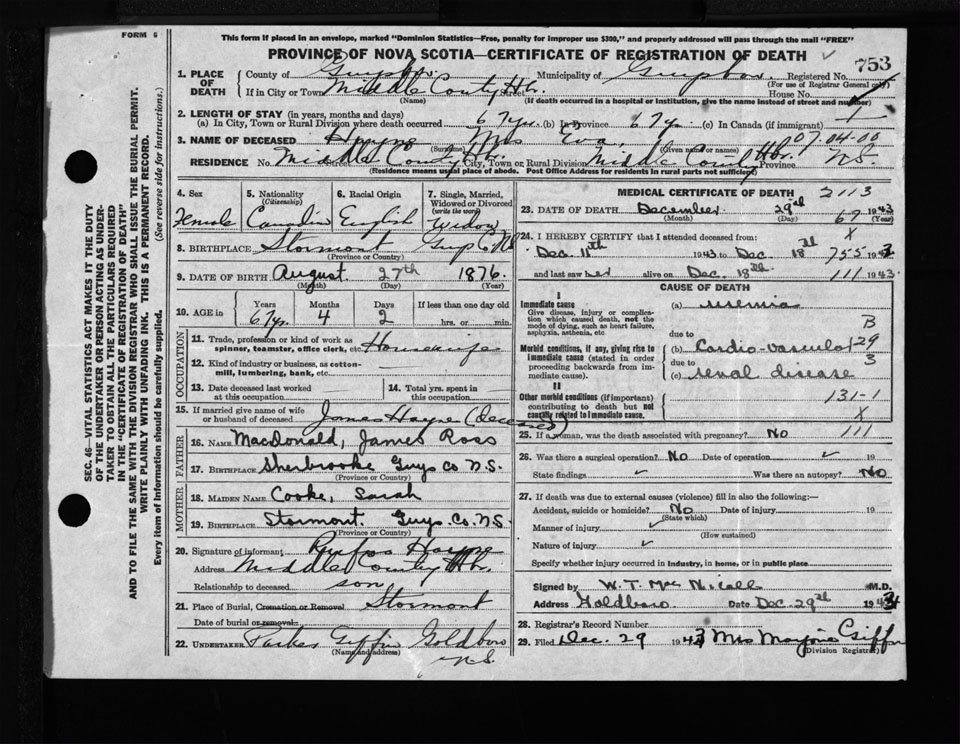 FORM 6
This form if placed in an envelope, marked "Dominion Statistics—Free, penalty for improper use $300," and properly addressed will pass through the mail "FREE"
PROVINCE OF NOVA SCOTIA—CERTIFICATE OF REGISTRATION OF DEATH
753
1. PLACE OF DEATH
County of Guysboro Municipality of Guysboro Registered No.
(For use of Registrar General only)
If in City or Town Middle County Hbr. Street House No.
(Name) (If death occurred in a hospital or institution, give the name instead of street and number)
2. LENGTH OF STAY (in years, months and days)
(a) In City, Town or Rural Division where death occurred 67 yrs. (b) In Province 67 yrs. (c) In Canada (if immigrant)
3. NAME OF DECEASED Hayne Mrs Eva 07.04-00
(Surname) (Given name or names)
RESIDENCE No. Middle County Hbr. Street City, Town or Rural Division Middle County Hbr. Province N.S.
(Residence means usual place of abode. Post Office Address for residents in rural parts not sufficient)
4. Sex
Female
5. Nationality (Citizenship)
Canadian
6. Racial Origin
English
7. Single, Married, Widowed or Divorced (write the word)
Widow
8. BIRTHPLACE Stormont Guy Co. N.S.
(Province or Country)
9. DATE OF BIRTH August 27th 1876.
(Month) (Day) (Year)
10. AGE in
Years Months Days If less than one day old
67 yrs 4 2 hrs. or min.
OCCUPATION
11. Trade, profession or kind of work as spinner, teamster, office clerk, etc. Housewife
12. Kind of industry or business, as cotton-mill, lumbering, bank, etc. —
13. Date deceased last worked at this occupation
14. Total yrs. spent in this occupation
15. If married give name of wife or husband of deceased James Hayne (deceased)
FATHER
16. NAME MacDonald, James Ross
17. BIRTHPLACE Sherbrooke Guys Co N.S.
(Province or Country)
MOTHER
18. MAIDEN NAME Cooke, Sarah
19. BIRTHPLACE Stormont. Guys. Co. N.S.
(Province or Country)
20. Signature of informant Rufus Hayne
Address Middle County Hbr.
Relationship to deceased son
21. Place of Burial, Cremation or Removal Stormont
Date of burial or removal
22. UNDERTAKER Parker Giffin Goldboro
(Name and address) N.S.
MEDICAL CERTIFICATE OF DEATH 2113
23. DATE OF DEATH December 29th 1943
(Month) (Day) (Year)
67
24. I HEREBY CERTIFY that I attended deceased from: X
Dec. 11th 1943 to Dec 18th 1943
755
and last saw her alive on Dec. 18th 1943.
111
CAUSE OF DEATH
I
Immediate cause
Give disease, injury or complication which caused death, not the mode of dying, such as heart failure, asphyxia, asthenia, etc
(a) uremia
due to B
Morbid conditions, if any, giving rise to immediate cause (stated in order proceeding backwards from immediate cause).
(b) Cardio-vascular 29
due to 3
(c) renal disease
II
Other morbid conditions (if important) contributing to death but not causally related to immediate cause.
131-1
X
25. If a woman, was the death associated with pregnancy? No 111
26. Was there a surgical operation? No Date of operation ✓ 19
State findings ✓ Was there an autopsy? No
27. If death was due to external causes (violence) fill in also the following:—
Accident, suicide or homicide? No Date of injury 19
(State which)
Manner of injury ✓
(How sustained)
Nature of injury ✓
Specify whether injury occurred in industry, in home, or in public place
Signed by W. T. MacNicoll M.D.
Address Goldboro. Date Dec. 29th 1943
28. Registrar's Record Number
29. Filed Dec. 29 1943 Mrs Marjorie Giffin
(Division Registrar)
SEC. 46—VITAL STATISTICS ACT MAKES IT THE DUTY
OF THE UNDERTAKER OR PERSON ACTING AS UNDER-
TAKER TO OBTAIN ALL THE PARTICULARS REQUIRED
IN THE "CERTIFICATE OF REGISTRATION OF DEATH"
AND TO FILE THE SAME WITH THE DIVISION REGISTRAR WHO SHALL ISSUE THE BURIAL PERMIT.
WRITE PLAINLY WITH UNFADING INK. THIS IS A PERMANENT RECORD.
Every item of Information should be carefully supplied. (See reverse side for instructions.)